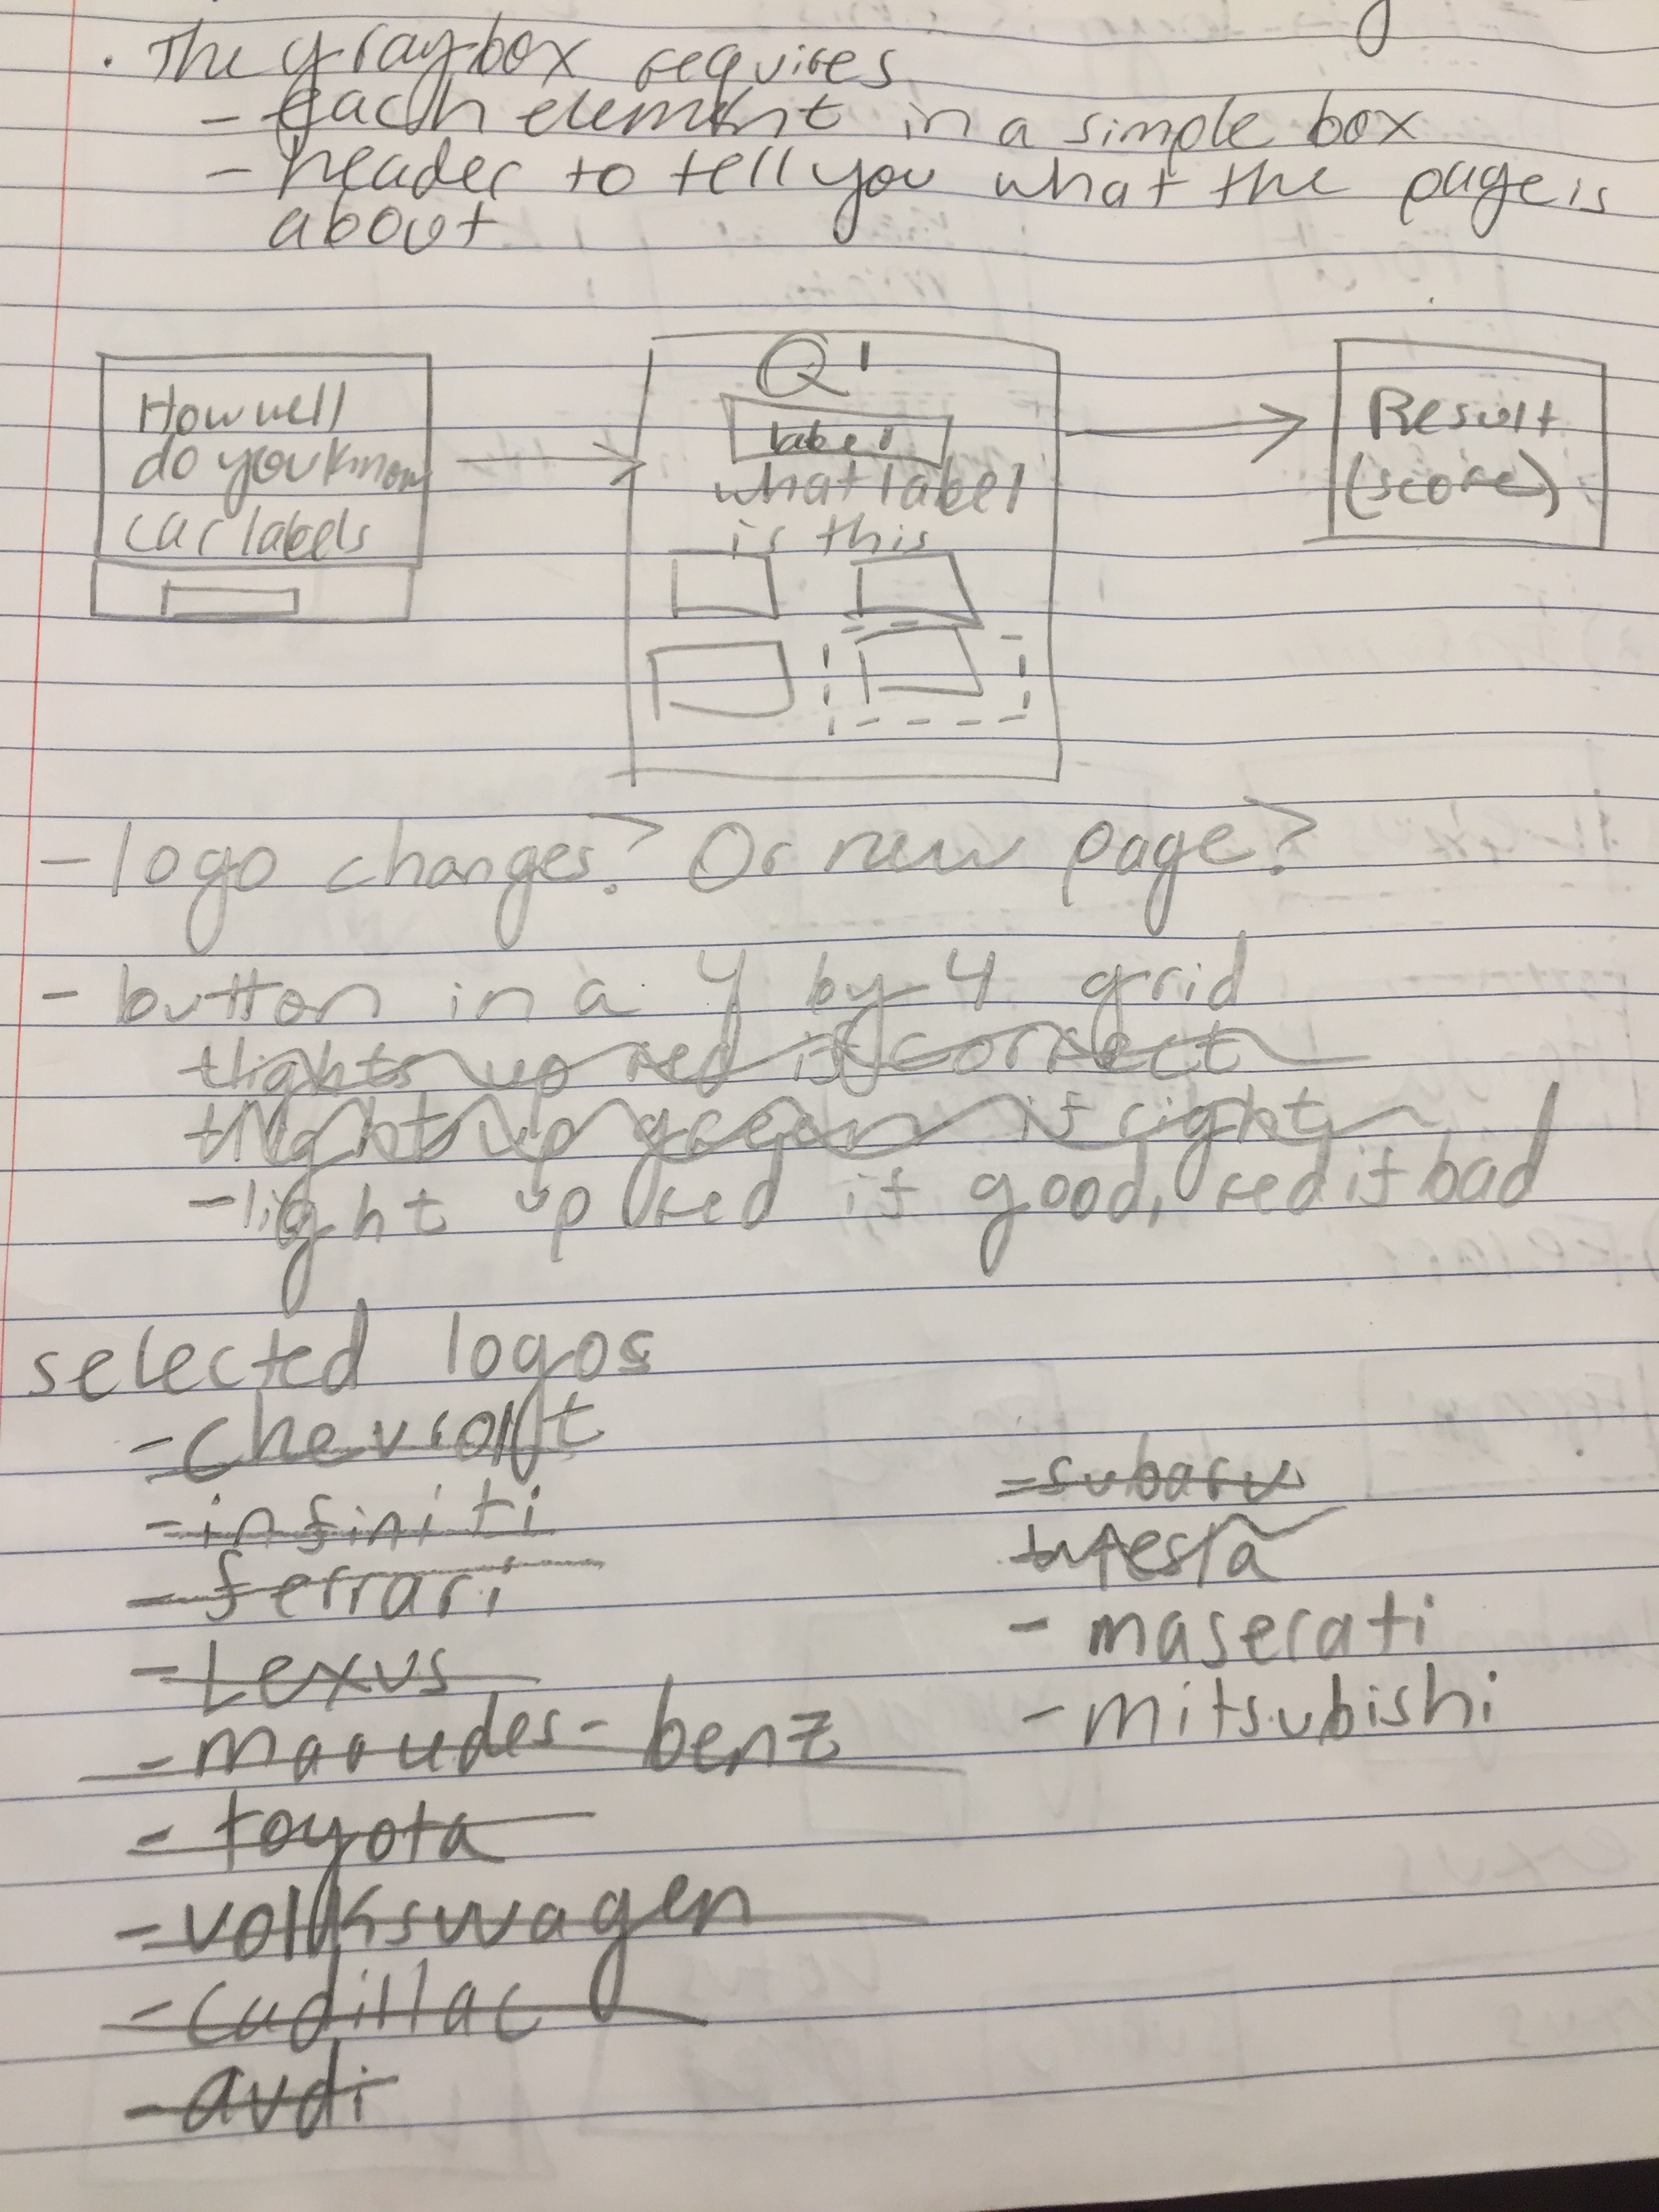 . The graybox requires
- each element in a simple box
- header to tell you what the page is
about
How well
do you know
car labels
Q1
label
what label
is this
Result
(score)
- logo changes? Or new page?
- button in a 4 by 4 grid
lights up red if correct
light up green if right
- light up red if good, red if bad
selected logos
- chevrolt
- infiniti
- ferrari
- Lexus
- benz
- toyota
- volkswagen
- cadillac
- audi
- subaru
tesla
- maserati
- mitsubishi